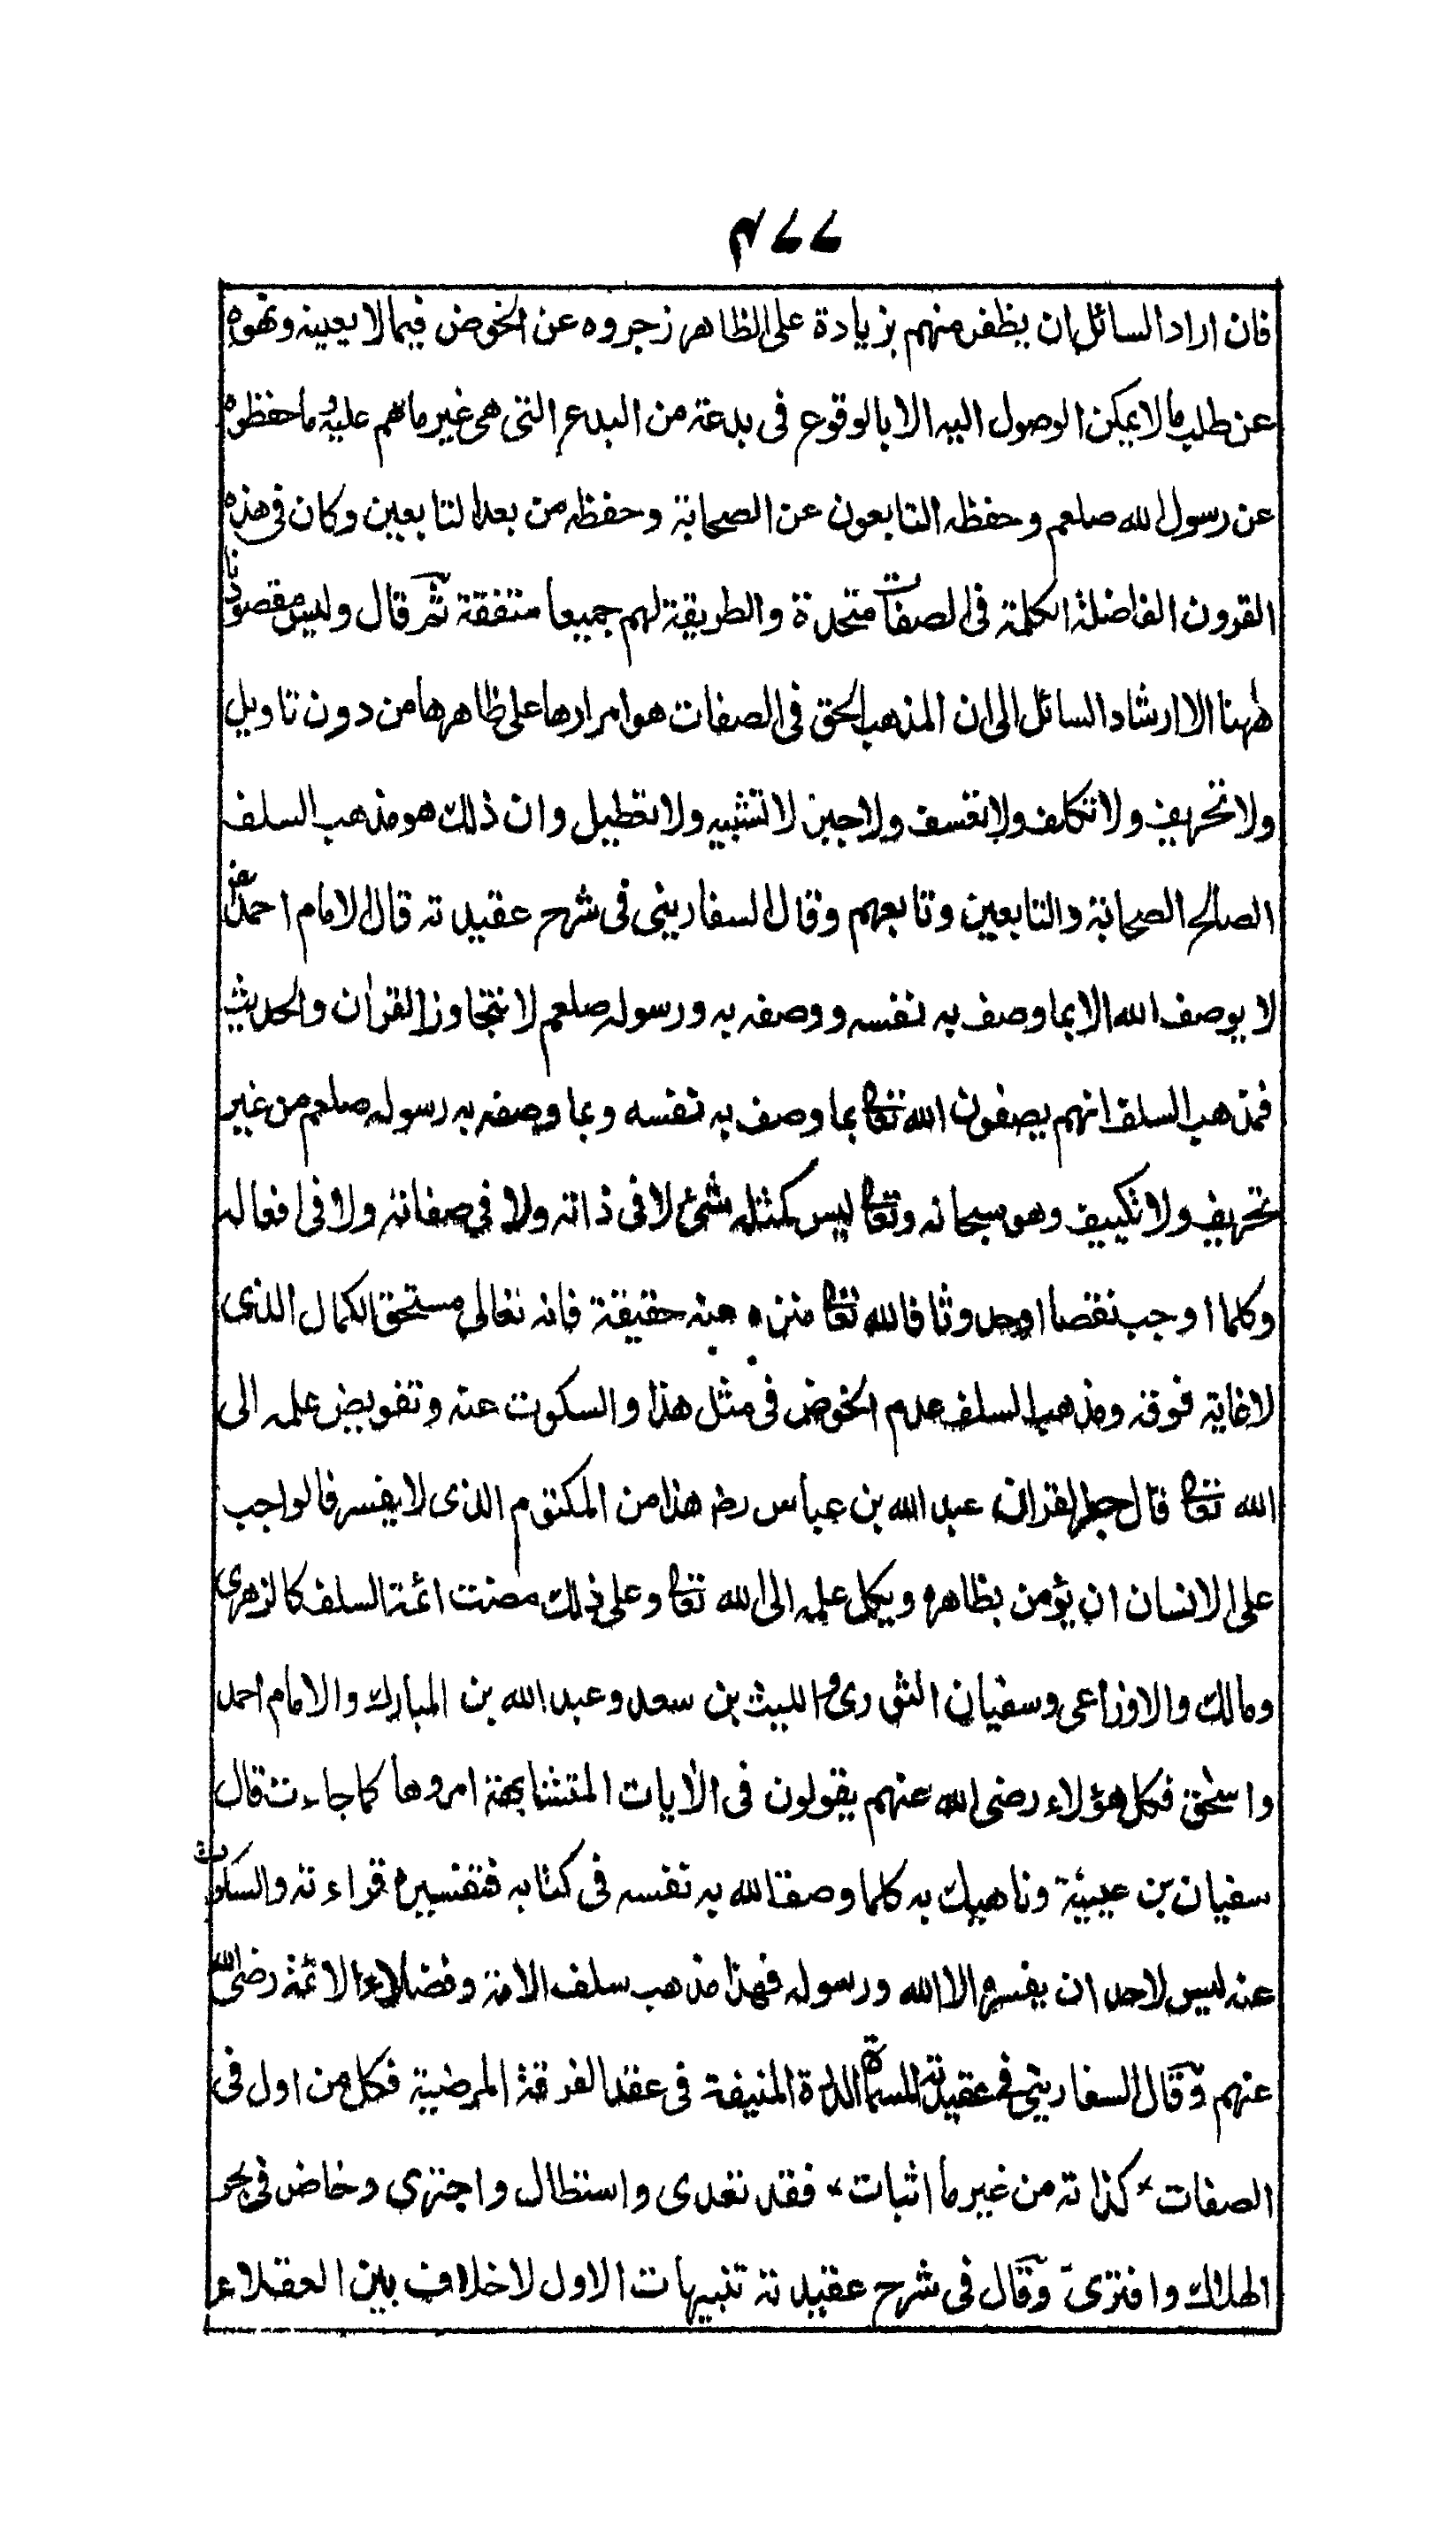 ۴۷۷
فان اراد السائل ان يظفر منهم بزيادة على الظاهر زجروه عن الخوض فيما لا يعينه ونهوه
عن طلب ما لا يمكن الوصول اليه الا بالوقوع في بدعة من البدع التي هي غير ما هم عليه وما حفظوه
عن رسول الله صلعم وحفظه التابعون عن الصحابة وحفظه من بعد التابعين وكان في هذه
القرون الفاضلة الكلمة في الصفات متحدة والطريقة لهم جميعا متفقة ثم قال وليس مقصودنا
ههنا الا ارشاد السائل الى ان المذهب الحق في الصفات هو امرارها على ظاهرها من دون تاويل
ولا تحريف ولا تكلف ولا تعسف ولا جبن لا تشبيه ولا تعطيل وان ذلك هو مذهب السلف
الصالح الصحابة والتابعين وتابعهم وقال السفاريني في شرح عقيدته قال الامام احمد رض
لا يوصف الله الا بما وصف به نفسه ووصفه به ورسوله صلعم لا نتجاوز القران والحديث
فمذهب السلف انهم يصفون الله تعالى بما وصف به نفسه وبما وصفه به رسوله صلعم من غير
تحريف ولا تكييف وهو سبحانه وتعالى ليس كمثله شئ لا في ذاته ولا في صفاته ولا في افعاله
وكلما اوجب نقصا اوحدوثا فالله تعالى منزه عنه حقيقة فانه تعالى مستحق الكمال الذي
لا غاية فوقه ومذهب السلف عدم الخوض في مثل هذا والسكوت عنه وتفويض علمه الى
الله تعالى قال حبر القران عبد الله بن عباس رض هذا من المكتوم الذى لا يفسر فالواجب
على الانسان ان يؤمن بظاهره ويكل علمه الى الله تعالى وعلى ذلك مضت ائمة السلف كالزهري
ومالك والاوزاعي وسفيان الثوري والليث بن سعد وعبد الله بن المبارك والامام احمد
واسحق فكل هؤلاء رضي الله عنهم يقولون في الايات المتشابهة امروها كما جاءت قال
سفيان بن عيينة وناهيك به كلما وصف الله به نفسه في كتابه فتفسيره قراءته والسكوت
عنه ليس لاحد ان يفسره الا الله ورسوله فهذا مذهب سلف الامة وفضلاء الائمة رضي الله
عنهم وقال السفاريني في عقيدته المسماة الدرة المنيفة في عقد الفرقة المرضية فكل من اول في
الصفات * كذاته من غير ما اثبات * فقد تعدى واستطال واجترى وخاض في بحر
الهلاك وافترى وقال في شرح عقيدته تنبيهات الاول لا خلاف بين العقلاء